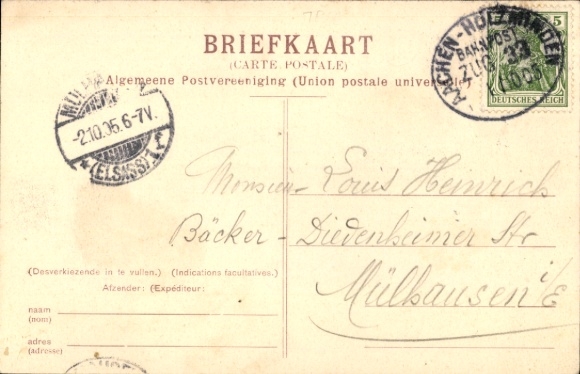 BRIEFKAART
(CARTE POSTALE)
Algemeene Postvereeniging (Union postale universelle)
AACHEN-HOLZMINDEN
BAHNPOST
ZUG 33
5
DEUTSCHES REICH
-2.10.05.6-7V.
*(ELSASS)1
Monsieur Louis Heinrich
Bäcker - Diedenheimer Str
Mülhausen i/E
(Desverkiezende in te vullen.) (Indications facultatives.)
Afzender: (Expéditeur:
naam
(nom)
adres
(adresse)